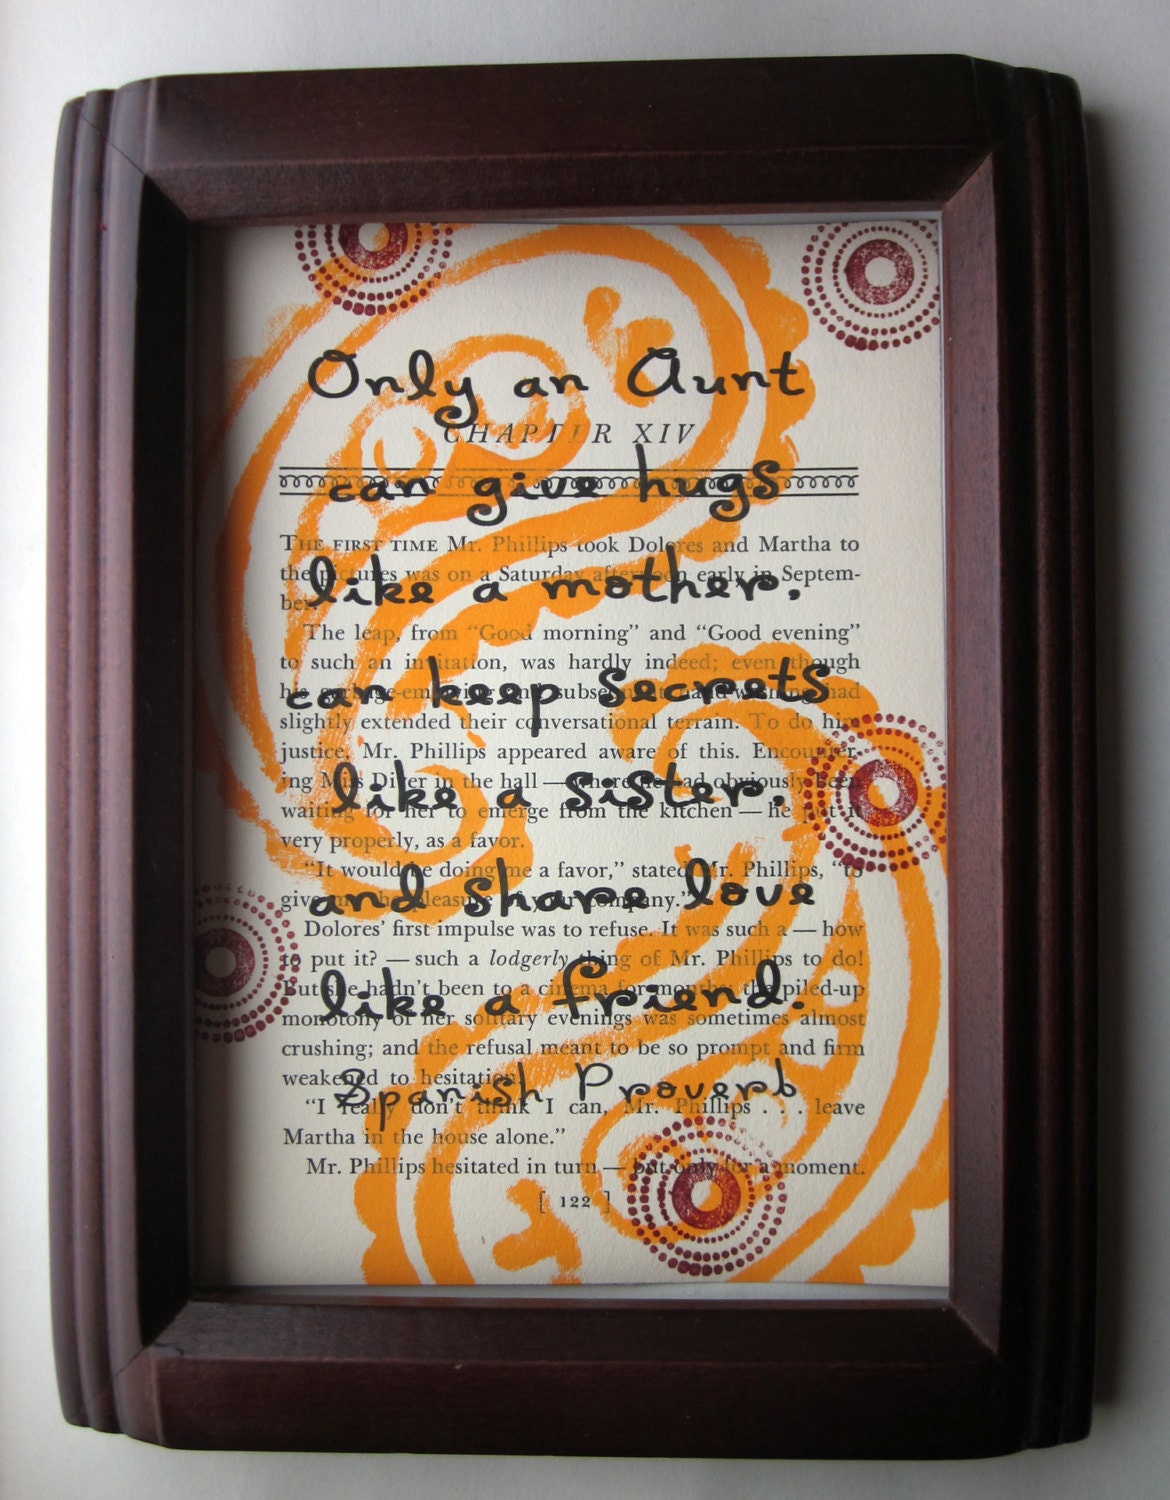 Only an Aunt
CHAPTER XIV
can give hugs
THE FIRST TIME Mr. Phillips took Dolores and Martha to
the pictures was on a Saturday afternoon early in Septem-
ber.
like a mother,
The leap, from “Good morning” and “Good evening”
to such an invitation, was hardly indeed; even though
his garbage-emptying and subsequent hand-washing had
can keep secrets
slightly extended their conversational terrain. To do him
justice, Mr. Phillips appeared aware of this. Encounter-
ing Miss Diver in the hall — where he had obviously been
like a sister,
waiting for her to emerge from the kitchen — he put it
very properly, as a favor.
“It would be doing me a favor,” stated Mr. Phillips, “to
give me the pleasure of your company.”
and share love
Dolores’ first impulse was to refuse. It was such a — how
to put it? — such a lodgerly thing of Mr. Phillips to do!
But she hadn’t been to a cinema for months; the piled-up
like a friend.
monotony of her solitary evenings was sometimes almost
crushing; and the refusal meant to be so prompt and firm
weakened to hesitation.
Spanish Proverb
“I really don’t think I can, Mr. Phillips . . . leave
Martha in the house alone.”
Mr. Phillips hesitated in turn — but only for a moment.
[ 122 ]